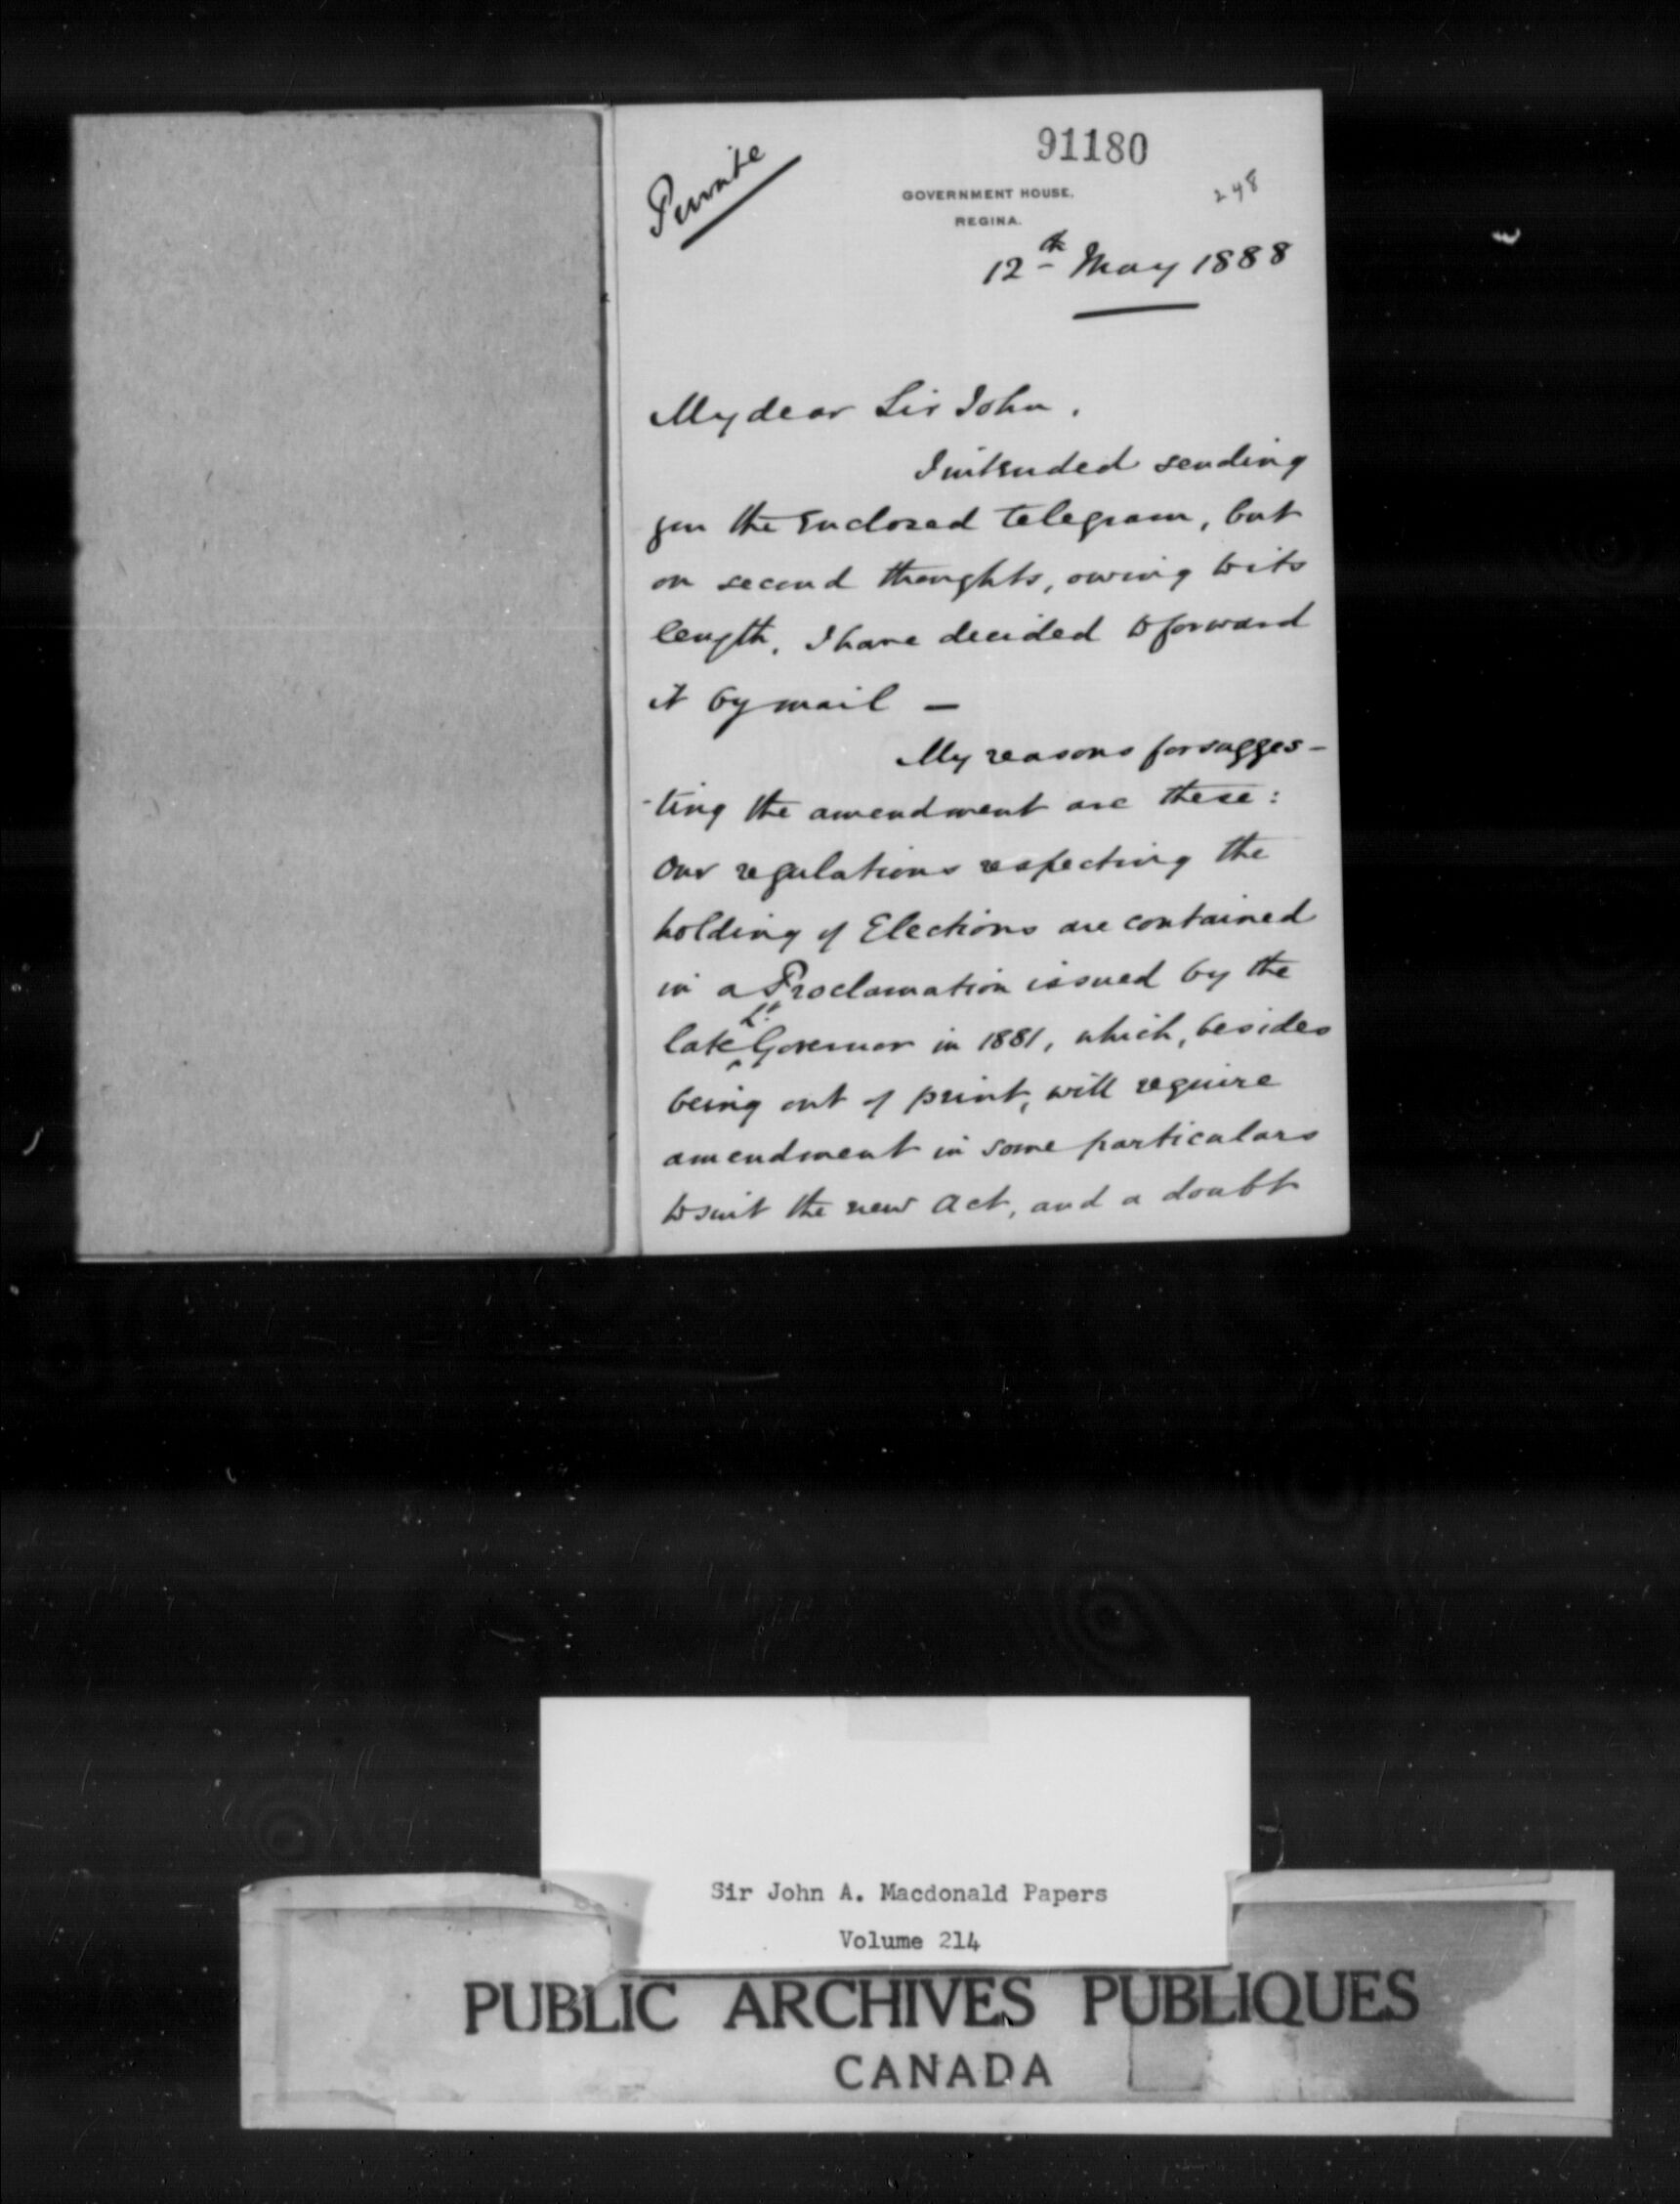 Private
91180
248
GOVERNMENT HOUSE.
REGINA.
12th May 1888
My dear Sir John,
I intended sending
you the enclosed telegram, but
on second thoughts, owing to its
length, I have decided to forward
it by mail —
My reasons for sugges-
-ting the amendment are these:
Our regulations respecting the
holding of Elections are contained
in a Proclamation issued by the
late Lt Governor in 1881, which, besides
being out of print, will require
amendment in some particulars
to suit the new Act, and a doubt
Sir John A. Macdonald Papers
Volume 214
PUBLIC ARCHIVES PUBLIQUES
CANADA